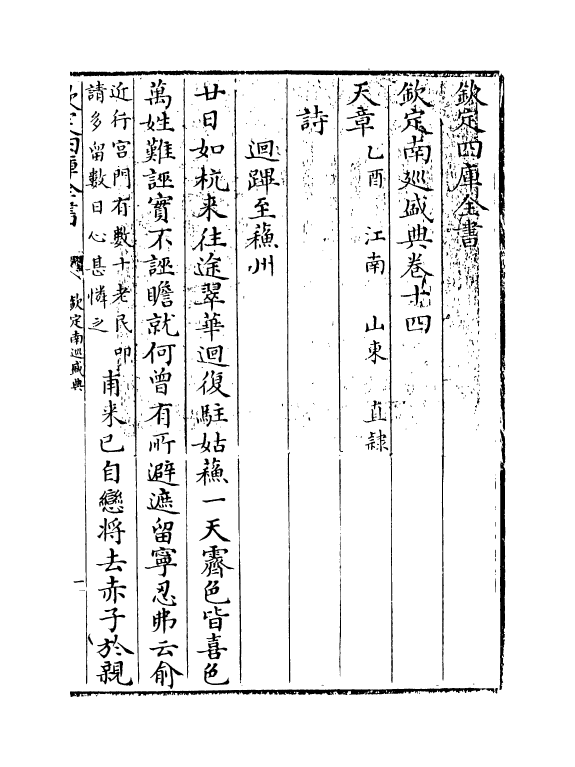 欽定四庫全書
欽定南巡盛典卷十四
天章　乙酉　江南　山東　直隸
詩
迴蹕至蘇州
廿日如杭来往途翠華迴復駐姑蘓一天霽色皆喜色
萬姓難誣實不誣瞻就何曾有所避遮留寧忍弗云俞
近行宫門有數十老民叩
請多留數日心甚憐之
甫来已自戀将去赤子於親
欽定四庫全書
欽定南巡盛典
一